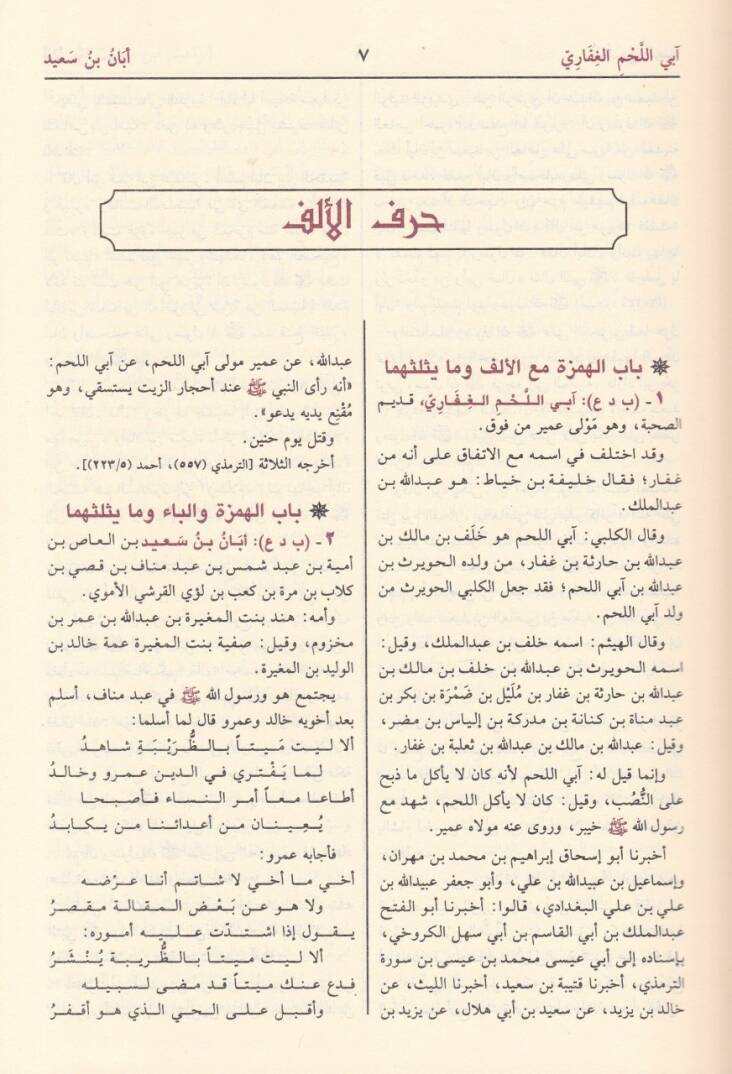 آبي اللَّحْمِ الغِفَارِيّ
٧
أبَانُ بنُ سَعيد
حرف الألف
❋ باب الهمزة مع الألف وما يثلثهما
١ ـ (ب د ع): آبي اللَّحْمِ الغِفَارِيّ، قديم
الصحبة، وهو مَوْلى عمير من فوق.
وقد اختلف في اسمه مع الاتفاق على أنه من
غفار؛ فقال خليفة بن خياط: هو عبدالله بن
عبدالملك.
وقال الكلبي: آبي اللحم هو خَلَف بن مالك بن
عبدالله بن حارثة بن غفار، من ولده الحويرث بن
عبدالله بن آبي اللحم؛ فقد جعل الكلبي الحويرث من
ولد آبي اللحم.
وقال الهيثم: اسمه خلف بن عبدالملك، وقيل:
اسمه الحويرث بن عبدالله بن خلف بن مالك بن
عبدالله بن حارثة بن غفار بن مُلَيْل بن ضَمْرَة بن بكر بن
عبد مناة بن كنانة بن مدركة بن إلياس بن مضر،
وقيل: عبدالله بن مالك بن عبدالله بن ثعلبة بن غفار.
وإنما قيل له: آبي اللحم لأنه كان لا يأكل ما ذبح
على النُّصُب، وقيل: كان لا يأكل اللحم، شهد مع
رسول الله ﷺ خيبر، وروى عنه مولاه عمير.
أخبرنا أبو إسحاق إبراهيم بن محمد بن مهران،
وإسماعيل بن عبيدالله بن علي، وأبو جعفر عبيدالله بن
علي بن علي البغدادي، قالوا: أخبرنا أبو الفتح
عبدالملك بن أبي القاسم بن أبي سهل الكروخي،
بإسناده إلى أبي عيسى محمد بن عيسى بن سورة
الترمذي، أخبرنا قتيبة بن سعيد، أخبرنا الليث، عن
خالد بن يزيد، عن سعيد بن أبي هلال، عن يزيد بن
عبدالله، عن عمير مولى آبي اللحم، عن آبي اللحم:
«أنه رأى النبي ﷺ عند أحجار الزيت يستسقي، وهو
مُقْنِع يديه يدعو».
وقتل يوم حنين.
أخرجه الثلاثة [الترمذي (٥٥٧)، أحمد (٢٢٣/٥)].
❋ باب الهمزة والباء وما يثلثهما
٢ ـ (ب د ع): أبَانُ بنُ سَعيد بن العاص بن
أمية بن عبد شمس بن عبد مناف بن قصي بن
كلاب بن مرة بن كعب بن لؤي القرشي الأموي.
وأمه: هند بنت المغيرة بن عبدالله بن عمر بن
مخزوم، وقيل: صفية بنت المغيرة عمة خالد بن
الوليد بن المغيرة.
يجتمع هو ورسول الله ﷺ في عبد مناف، أسلم
بعد أخويه خالد وعمرو قال لما أسلما:
ألا ليت مَيتاً بالظُّرَيْبَةِ شاهدُ
لما يَفْتري في الدين عمرو وخالدُ
أطاعا معاً أمر النساء فأصبحا
يُعِينان من أعدائنا من يكابدُ
فأجابه عمرو:
أخي ما أخي لا شاتم أنا عرْضه
ولا هو عن بَعْض المقالة مقصرُ
يقول إذا اشتدّت عليه أموره:
ألا ليت ميتاً بالظُّريبة يُنْشَرُ
فدع عنك ميتاً قد مضى لسبيله
وأقبل على الحي الذي هو أقفرُ